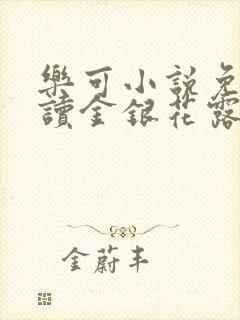 樂可小説免
讀金銀花露
金蔚丰